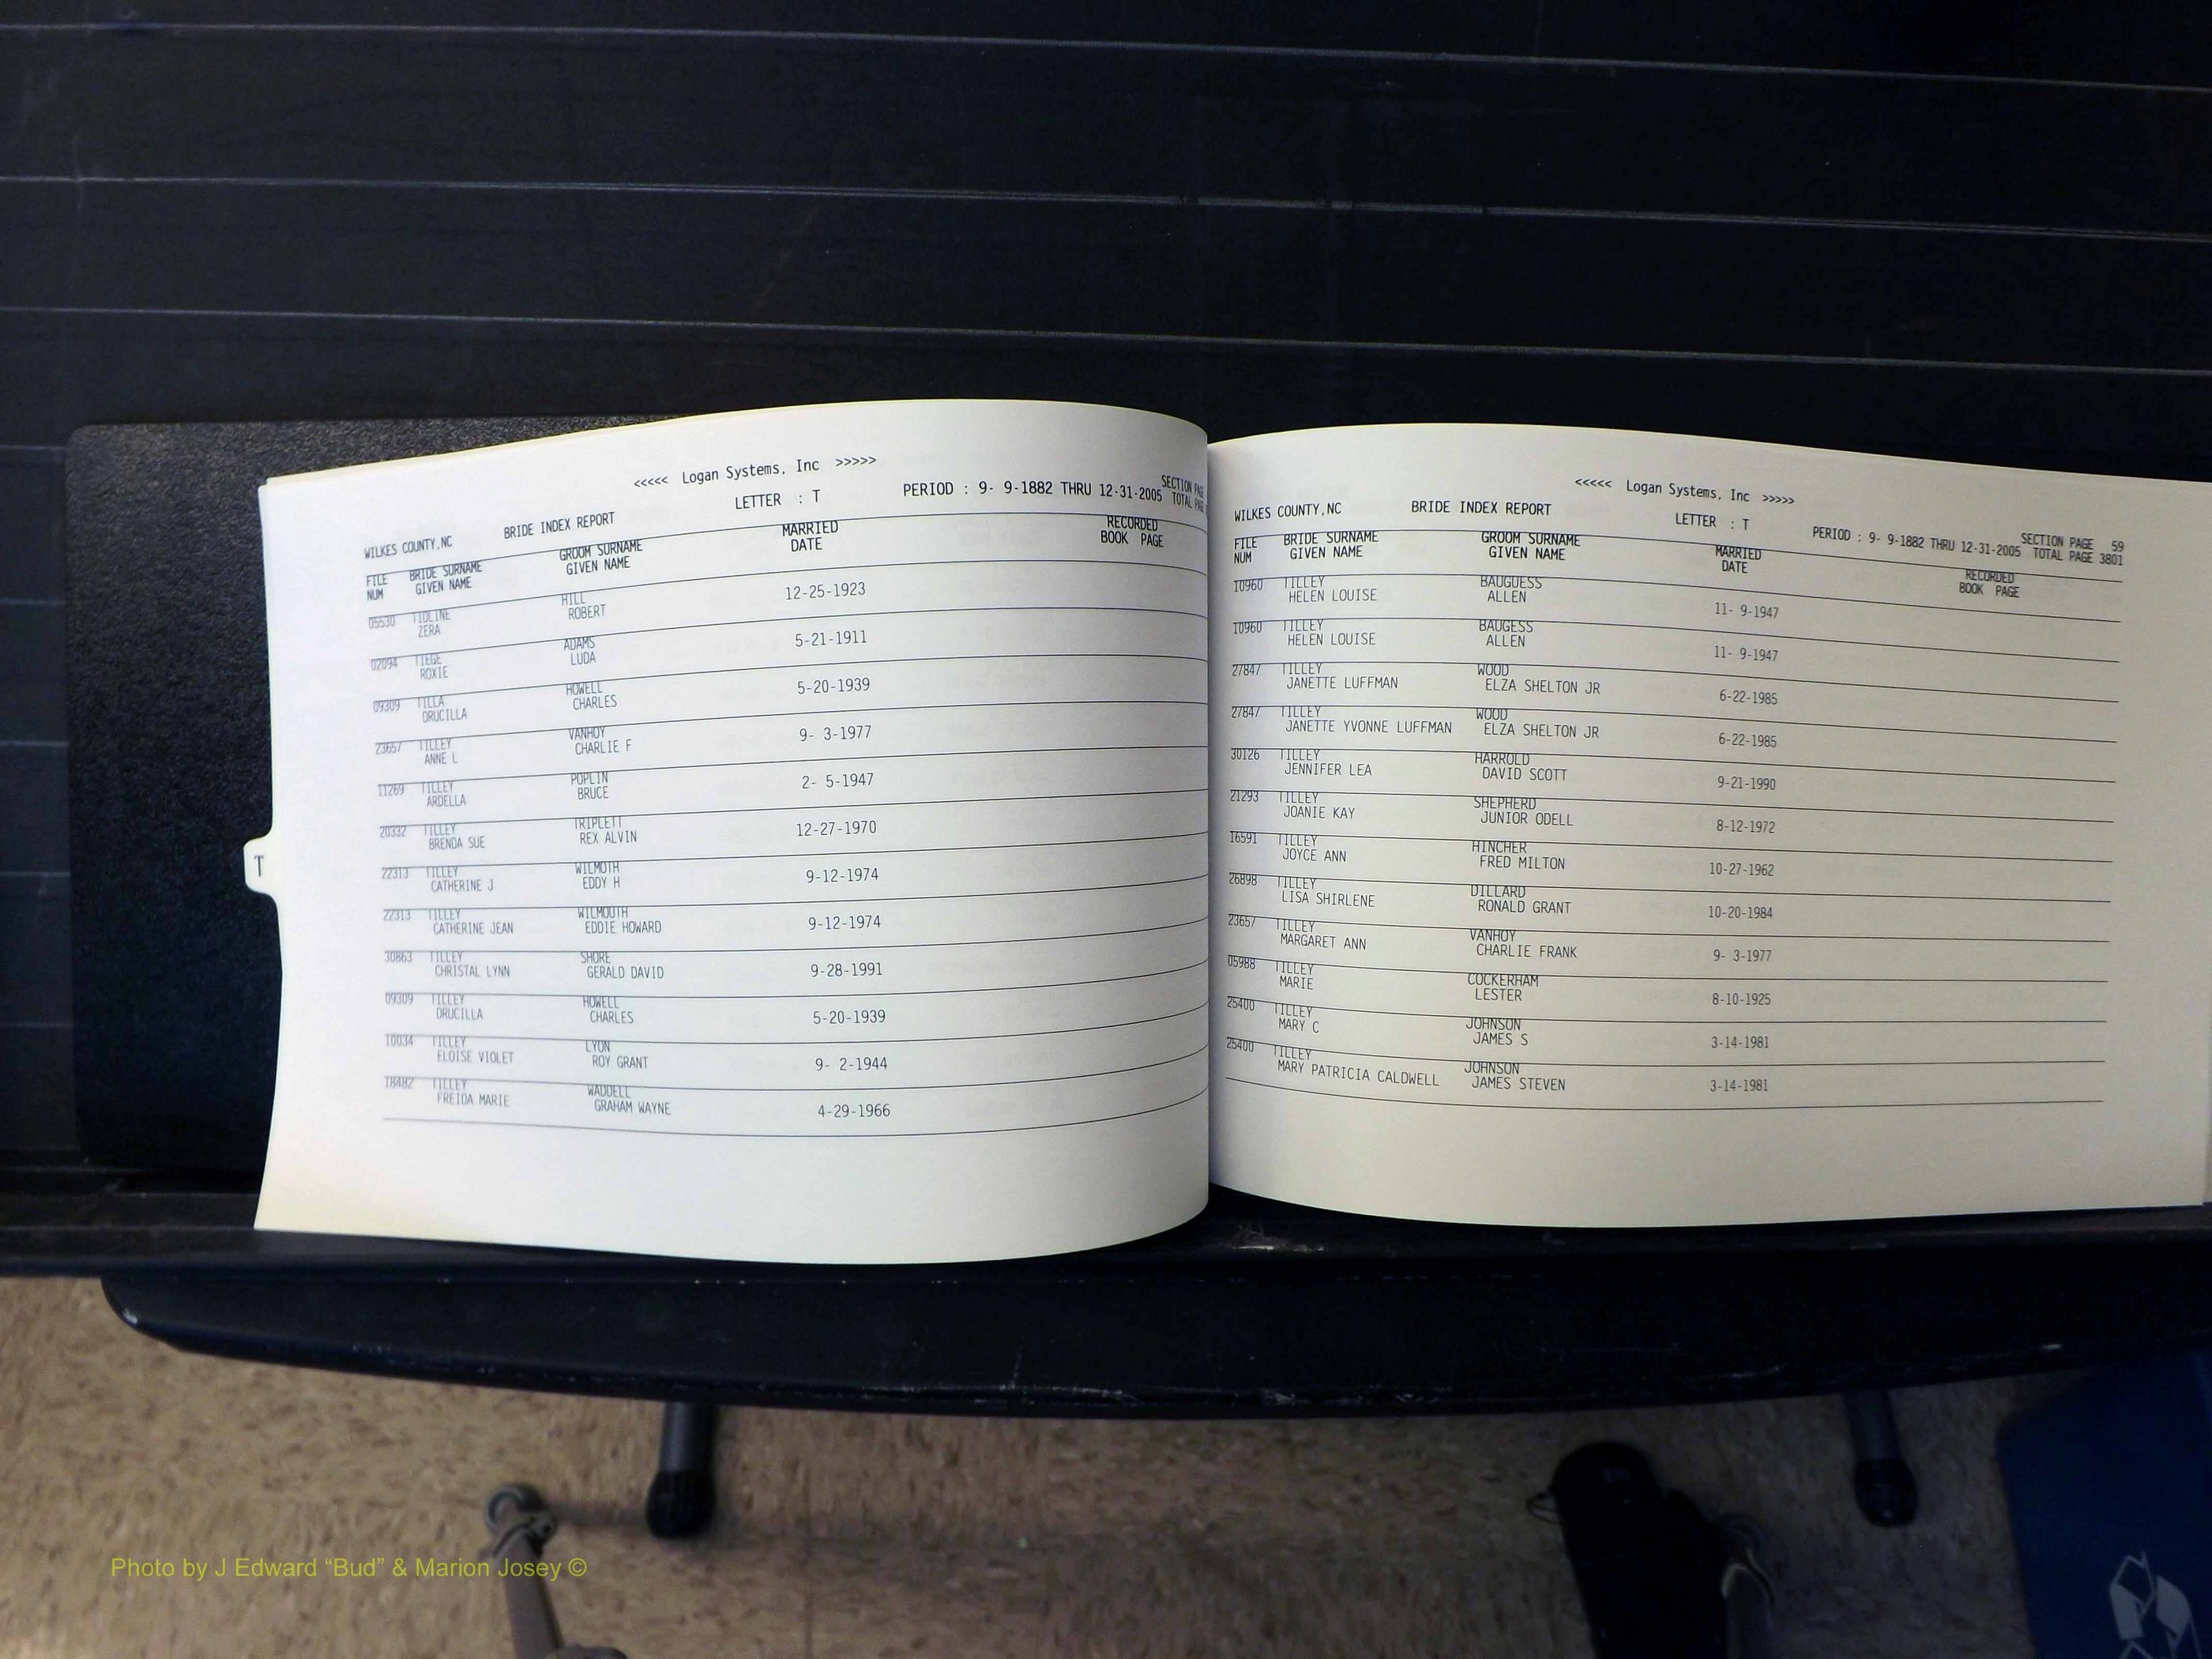 <<<<< Logan Systems, Inc >>>>>
WILKES COUNTY,NC BRIDE INDEX REPORT LETTER : T PERIOD : 9- 9-1882 THRU 12-31-2005 SECTION PAGE
TOTAL PAGE
FILE BRIDE SURNAME GROOM SURNAME MARRIED RECORDED
NUM GIVEN NAME GIVEN NAME DATE BOOK PAGE
05530 TIDLINE HILL
ZERA ROBERT 12-25-1923
02094 TIEGE ADAMS
ROXIE LUDA 5-21-1911
09309 TILLA HOWELL
DRUCILLA CHARLES 5-20-1939
23657 TILLEY VANHOY
ANNE L CHARLIE F 9- 3-1977
11269 TILLEY POPLIN
ARDELLA BRUCE 2- 5-1947
20332 TILLEY TRIPLETT
BRENDA SUE REX ALVIN 12-27-1970
22313 TILLEY WILMOTH
CATHERINE J EDDY H 9-12-1974
22313 TILLEY WILMOUTH
CATHERINE JEAN EDDIE HOWARD 9-12-1974
30863 TILLEY SHORE
CHRISTAL LYNN GERALD DAVID 9-28-1991
09309 TILLEY HOWELL
DRUCILLA CHARLES 5-20-1939
10034 TILLEY LYON
ELOISE VIOLET ROY GRANT 9- 2-1944
18482 TILLEY WADDELL
FREIDA MARIE GRAHAM WAYNE 4-29-1966
T
<<<<< Logan Systems, Inc >>>>>
WILKES COUNTY,NC BRIDE INDEX REPORT LETTER : T PERIOD : 9- 9-1882 THRU 12-31-2005 SECTION PAGE 59
TOTAL PAGE 3801
FILE BRIDE SURNAME GROOM SURNAME MARRIED RECORDED
NUM GIVEN NAME GIVEN NAME DATE BOOK PAGE
10960 TILLEY BAUGUESS
HELEN LOUISE ALLEN 11- 9-1947
10960 TILLEY BAUGESS
HELEN LOUISE ALLEN 11- 9-1947
27847 TILLEY WOOD
JANETTE LUFFMAN ELZA SHELTON JR 6-22-1985
27847 TILLEY WOOD
JANETTE YVONNE LUFFMAN ELZA SHELTON JR 6-22-1985
30126 TILLEY HARROLD
JENNIFER LEA DAVID SCOTT 9-21-1990
21293 TILLEY SHEPHERD
JOANIE KAY JUNIOR ODELL 8-12-1972
16591 TILLEY HINCHER
JOYCE ANN FRED MILTON 10-27-1962
26898 TILLEY DILLARD
LISA SHIRLENE RONALD GRANT 10-20-1984
23657 TILLEY VANHOY
MARGARET ANN CHARLIE FRANK 9- 3-1977
05988 TILLEY COCKERHAM
MARIE LESTER 8-10-1925
25400 TILLEY JOHNSON
MARY C JAMES S 3-14-1981
25400 TILLEY JOHNSON
MARY PATRICIA CALDWELL JAMES STEVEN 3-14-1981
Photo by J Edward “Bud” & Marion Josey ©